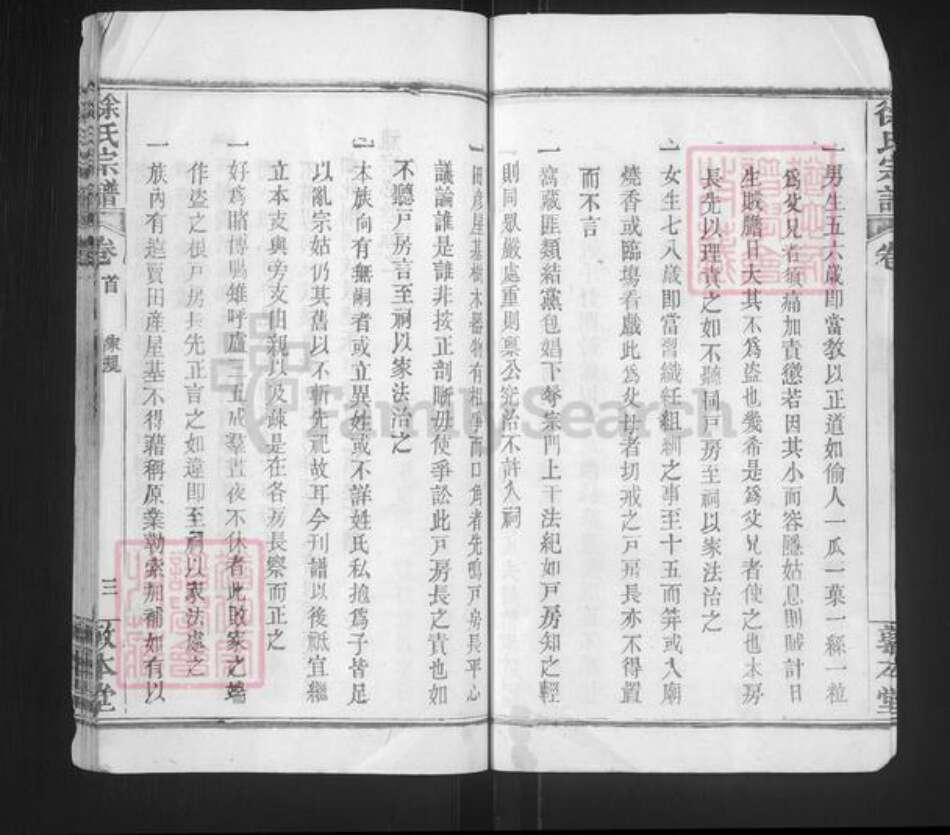 徐氏宗譜
卷
一男生五六歲即當教以正道如偷人一瓜一菓一絲一粒
爲父兄者須痛加責懲若因其小而容隱姑息則賊計日
生賊膽日大其不爲盜也幾希是爲父兄者使之也本房
長先以理責之如不聽同戶房至祠以家法治之
一女生七八歲即當習織紝組紃之事至十五而笄或入廟
燒香或臨塲看戲此爲父母者切戒之戶房長亦不得置
而不言
一窩藏匪類結黨包娼下辱宗門上干法紀如戶房知之輕
則同眾嚴處重則稟公究治不許入祠
一田產屋基樹木器物有相爭而口角者先鳴戶房長平心
議論誰是誰非按正剖斷毋使爭訟此戶房長之責也如
不聽戶房言至祠以家法治之
一本族向有無嗣者或立異姓或不詳姓氏私撿爲子皆足
以亂宗姑仍其舊以不斬先祀故耳今刊譜以後祗宜繼
立本支與旁支由親以及疎是在各房長察而正之
一好爲賭博鴨雉呼盧三五成羣晝夜不休者此敗家之端
作盜之根戶房長先正言之如違即至祠以家法處之
一族內有造賣田產屋基不得藉稱原業勒索加補如有以
徐氏宗譜
卷首
家規
三
敦本堂
FamilySearch